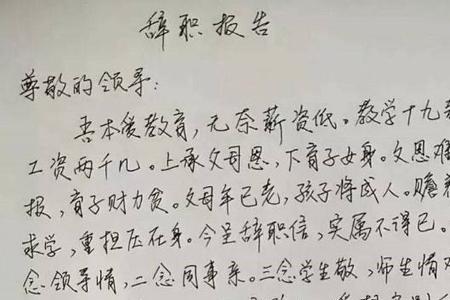 辞职报告
尊敬的领导:
吾本爱教育,无奈薪资低。教学十九
工资两千几。上承父母恩,下育子女身。父恩难
报,育子财力贫。父母年已老,孩子将成人。赡养
求学,重担压在身。今呈辞职信,实属不得已。
念领导情,二念同事亲。三念学生敬,师生情